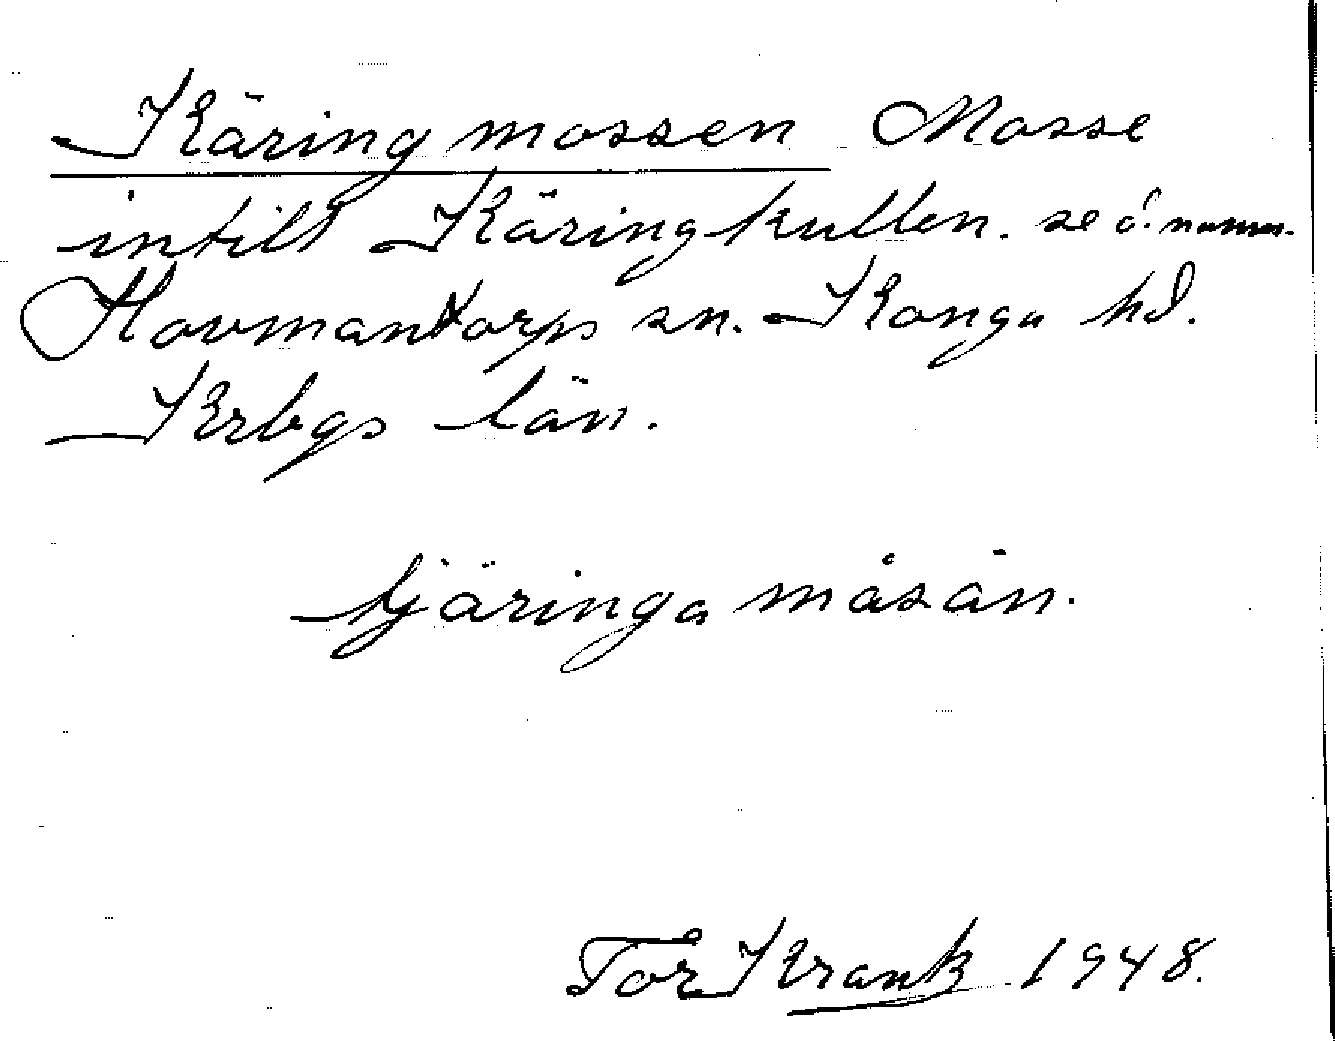 Käringmossen Mosse
intill Käringkullen. se d. namn.
Hovmantorps sn. Konga hd.
Krbgs län.
tjäringa måsän.
Tor Krank 1948.